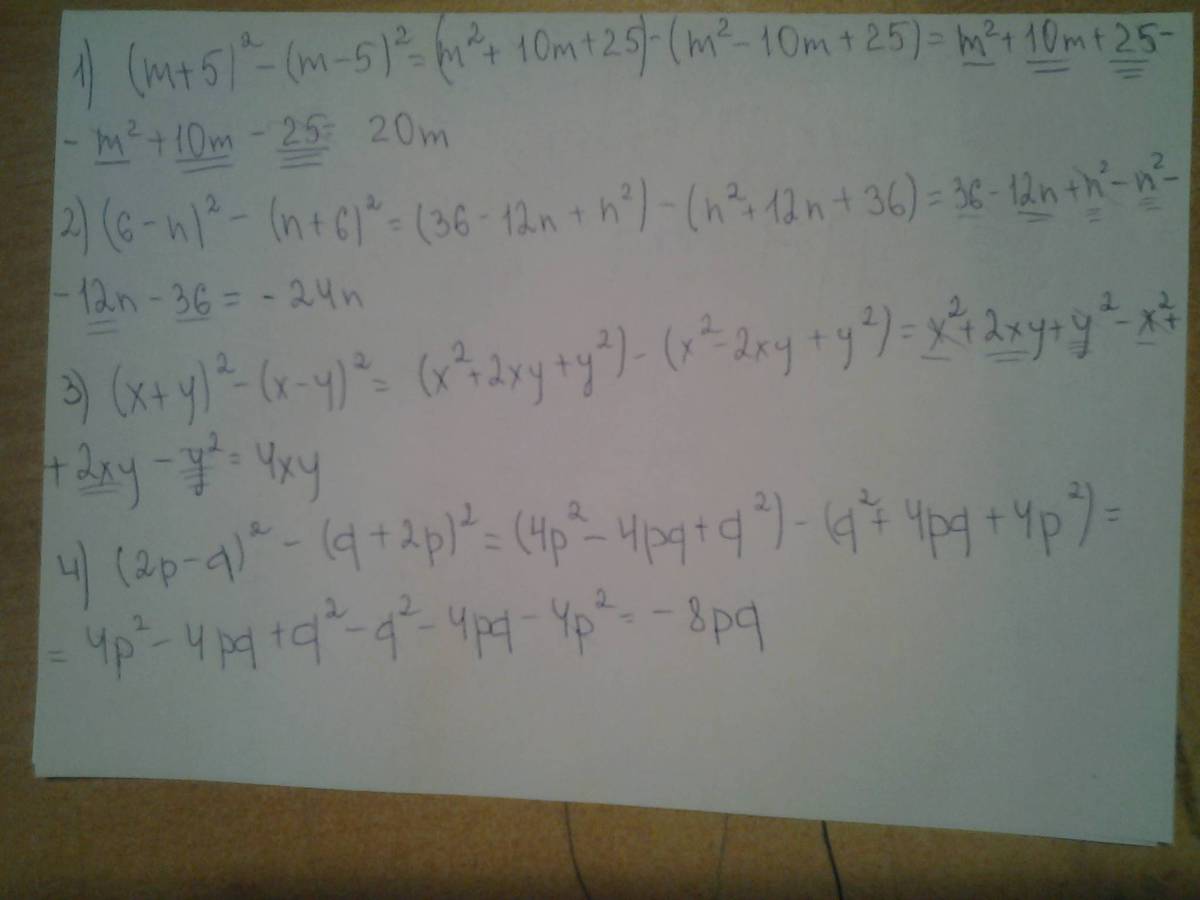 1) (m+5)² - (m-5)² = (m² + 10m + 25) - (m² - 10m + 25) = m² + 10m + 25 -
- m² + 10m - 25 = 20m
2) (6-n)² - (n+6)² = (36 - 12n + n²) - (n² + 12n + 36) = 36 - 12n + n² - n² -
- 12n - 36 = - 24n
3) (x+y)² - (x-y)² = (x² + 2xy + y²) - (x² - 2xy + y²) = x² + 2xy + y² - x² +
+ 2xy - y² = 4xy
4) (2p-q)² - (q+2p)² = (4p² - 4pq + q²) - (q² + 4pq + 4p²) =
= 4p² - 4pq + q² - q² - 4pq - 4p² = - 8pq